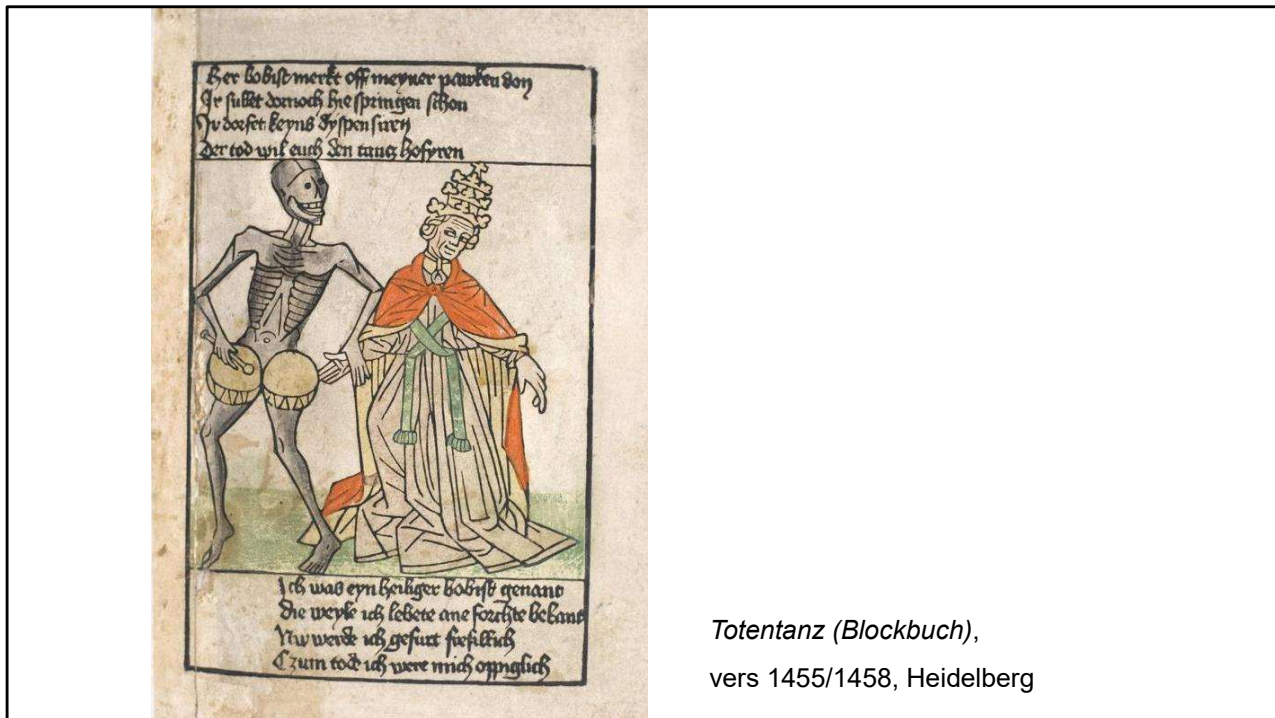 Her bobist merkt off meyner pawken don
Ir sullet dornoch hie springen schon
Ir dorfet keyns dyspensiren
Der tod wil euch den tantz hofyren
Ich was eyn heiliger bobist genant
Die weyle ich lebete ane forchte bekant
Nw werde ich gefurt frefillich
Czum tode ich were mich oppiglich
Totentanz (Blockbuch),
vers 1455/1458, Heidelberg